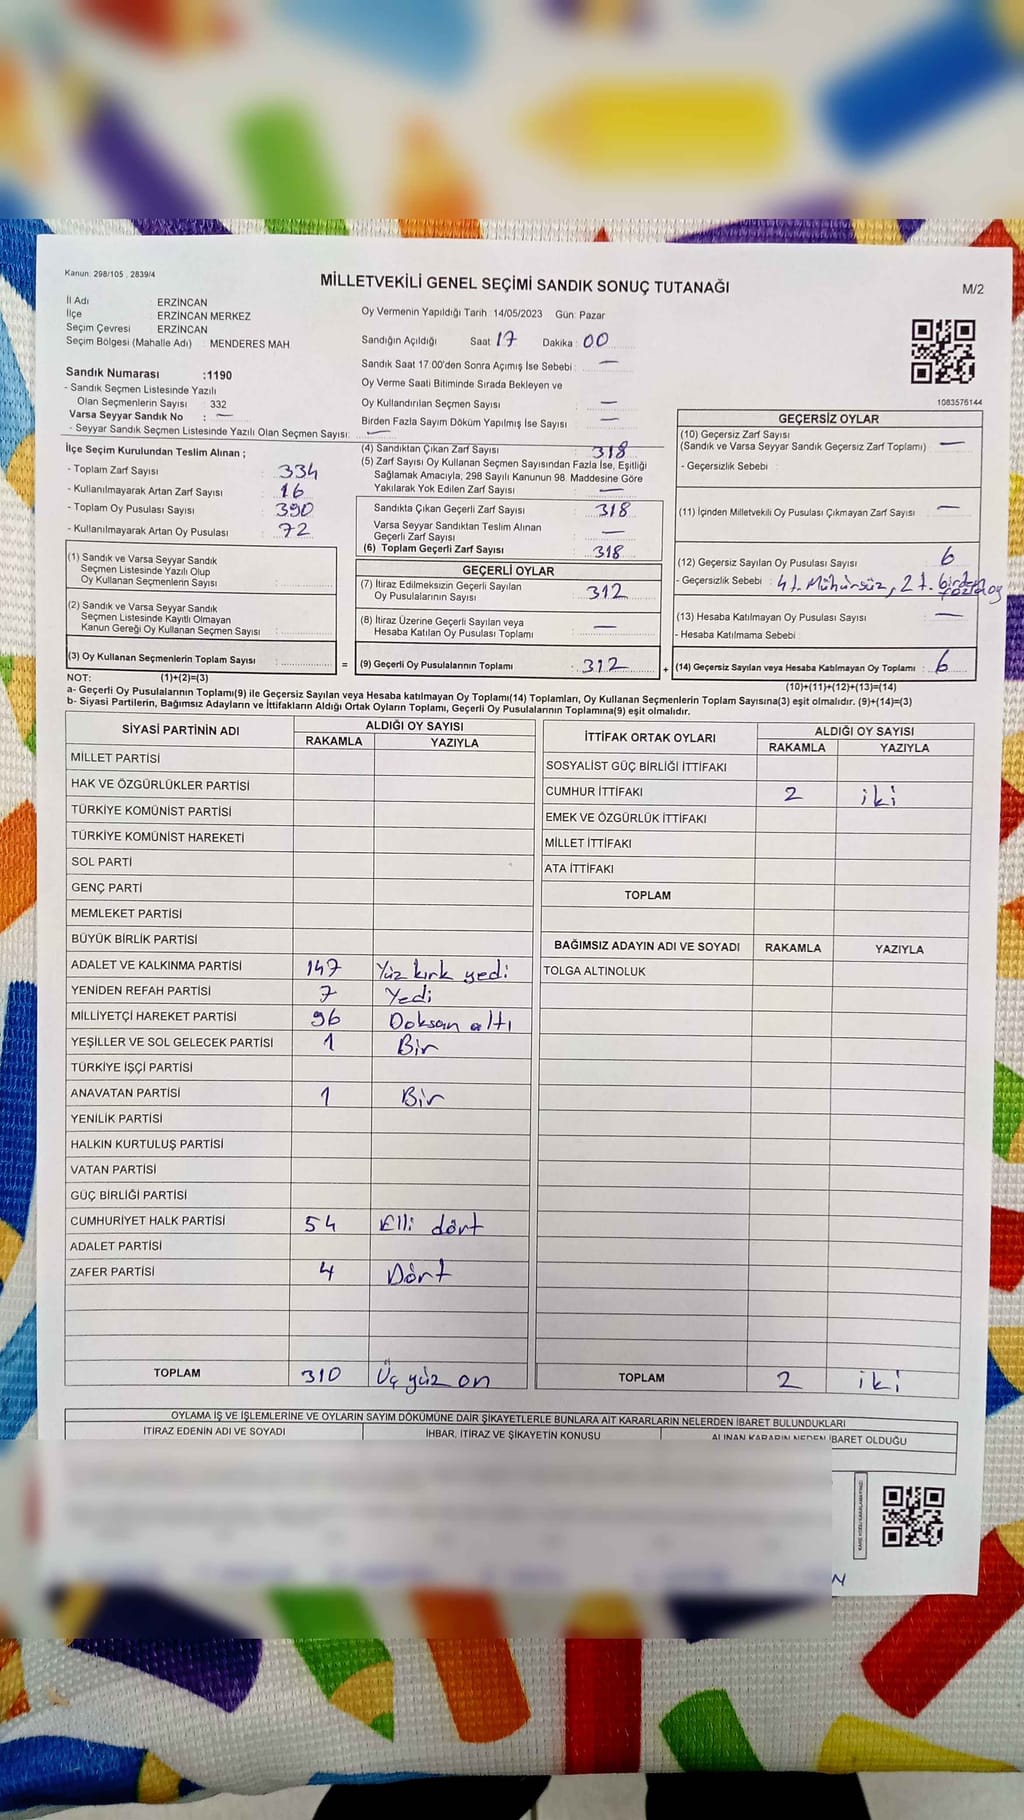 Kanun: 298/105 , 2839/4
MİLLETVEKİLİ GENEL SEÇİMİ SANDIK SONUÇ TUTANAĞI
M/2
İl Adı ERZİNCAN
İlçe ERZİNCAN MERKEZ
Seçim Çevresi ERZİNCAN
Seçim Bölgesi (Mahalle Adı) : MENDERES MAH
Oy Vermenin Yapıldığı Tarih 14/05/2023 Gün: Pazar
Sandığın Açıldığı Saat 17 Dakika : 00
Sandık Saat 17:00'den Sonra Açımış İse Sebebi : —
Oy Verme Saati Bitiminde Sırada Bekleyen ve
Oy Kullandırılan Seçmen Sayısı —
Birden Fazla Sayım Döküm Yapılmış İse Sayısı : —
1083576144
Sandık Numarası :1190
- Sandık Seçmen Listesinde Yazılı
Olan Seçmenlerin Sayısı : 332
Varsa Seyyar Sandık No : —
- Seyyar Sandık Seçmen Listesinde Yazılı Olan Seçmen Sayısı: —
İlçe Seçim Kurulundan Teslim Alınan ;
- Toplam Zarf Sayısı : 334
- Kullanılmayarak Artan Zarf Sayısı : 16
- Toplam Oy Pusulası Sayısı : 390
- Kullanılmayarak Artan Oy Pusulası : 72
(1) Sandık ve Varsa Seyyar Sandık
Seçmen Listesinde Yazılı Olup
Oy Kullanan Seçmenlerin Sayısı :
(2) Sandık ve Varsa Seyyar Sandık
Seçmen Listesinde Kayıtlı Olmayan
Kanun Gereği Oy Kullanan Seçmen Sayısı :
(3) Oy Kullanan Seçmenlerin Toplam Sayısı :
(4) Sandıktan Çıkan Zarf Sayısı : 318
(5) Zarf Sayısı Oy Kullanan Seçmen Sayısından Fazla İse, Eşitliği
Sağlamak Amacıyla, 298 Sayılı Kanunun 98. Maddesine Göre
Yakılarak Yok Edilen Zarf Sayısı : —
Sandıkta Çıkan Geçerli Zarf Sayısı : 318
Varsa Seyyar Sandıktan Teslim Alınan
Geçerli Zarf Sayısı : —
(6) Toplam Geçerli Zarf Sayısı : 318
GEÇERLİ OYLAR
(7) İtiraz Edilmeksizin Geçerli Sayılan
Oy Pusulalarının Sayısı : 312
(8) İtiraz Üzerine Geçerli Sayılan veya
Hesaba Katılan Oy Pusulası Toplamı : —
= (9) Geçerli Oy Pusulalarının Toplamı : 312
GEÇERSİZ OYLAR
(10) Geçersiz Zarf Sayısı
(Sandık ve Varsa Seyyar Sandık Geçersiz Zarf Toplamı) : —
- Geçersizlik Sebebi :
(11) İçinden Milletvekili Oy Pusulası Çıkmayan Zarf Sayısı : —
(12) Geçersiz Sayılan Oy Pusulası Sayısı : 6
- Geçersizlik Sebebi : 4 t. Mühürsüz, 2 t. birden fazla oy
(13) Hesaba Katılmayan Oy Pusulası Sayısı : —
- Hesaba Katılmama Sebebi :
+ (14) Geçersiz Sayılan veya Hesaba Katılmayan Oy Toplamı : 6
NOT: (1)+(2)=(3)
(10)+(11)+(12)+(13)=(14)
a- Geçerli Oy Pusulalarının Toplamı(9) ile Geçersiz Sayılan veya Hesaba katılmayan Oy Toplamı(14) Toplamları, Oy Kullanan Seçmenlerin Toplam Sayısına(3) eşit olmalıdır. (9)+(14)=(3)
b- Siyasi Partilerin, Bağımsız Adayların ve İttifakların Aldığı Ortak Oyların Toplamı, Geçerli Oy Pusulalarının Toplamına(9) eşit olmalıdır.
SİYASİ PARTİNİN ADI ALDIĞI OY SAYISI
RAKAMLA YAZIYLA
MİLLET PARTİSİ
HAK VE ÖZGÜRLÜKLER PARTİSİ
TÜRKİYE KOMÜNİST PARTİSİ
TÜRKİYE KOMÜNİST HAREKETİ
SOL PARTİ
GENÇ PARTİ
MEMLEKET PARTİSİ
BÜYÜK BİRLİK PARTİSİ
ADALET VE KALKINMA PARTİSİ 147 Yüz kırk yedi
YENİDEN REFAH PARTİSİ 7 Yedi
MİLLİYETÇİ HAREKET PARTİSİ 96 Doksan altı
YEŞİLLER VE SOL GELECEK PARTİSİ 1 Bir
TÜRKİYE İŞÇİ PARTİSİ
ANAVATAN PARTİSİ 1 Bir
YENİLİK PARTİSİ
HALKIN KURTULUŞ PARTİSİ
VATAN PARTİSİ
GÜÇ BİRLİĞİ PARTİSİ
CUMHURİYET HALK PARTİSİ 54 Elli dört
ADALET PARTİSİ
ZAFER PARTİSİ 4 Dört
TOPLAM 310 Üç yüz on
İTTİFAK ORTAK OYLARI ALDIĞI OY SAYISI
RAKAMLA YAZIYLA
SOSYALİST GÜÇ BİRLİĞİ İTTİFAKI
CUMHUR İTTİFAKI 2 iki
EMEK VE ÖZGÜRLÜK İTTİFAKI
MİLLET İTTİFAKI
ATA İTTİFAKI
TOPLAM
BAĞIMSIZ ADAYIN ADI VE SOYADI RAKAMLA YAZIYLA
TOLGA ALTINOLUK
TOPLAM 2 iki
OYLAMA İŞ VE İŞLEMLERİNE VE OYLARIN SAYIM DÖKÜMÜNE DAİR ŞİKAYETLERLE BUNLARA AİT KARARLARIN NELERDEN İBARET BULUNDUKLARI
İTİRAZ EDENİN ADI VE SOYADI İHBAR, İTİRAZ VE ŞİKAYETİN KONUSU ALINAN KARARIN NEDEN İBARET OLDUĞU